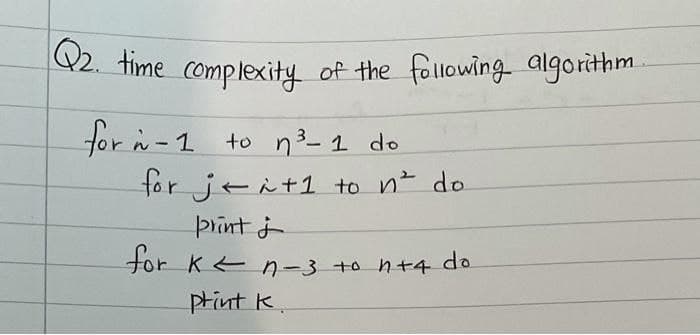 Q2. time complexity of the following algorithm.
for i - 1 to n³ - 1 do
for j ← i + 1 to n² do
print j
for k ← n - 3 to n + 4 do
print k.